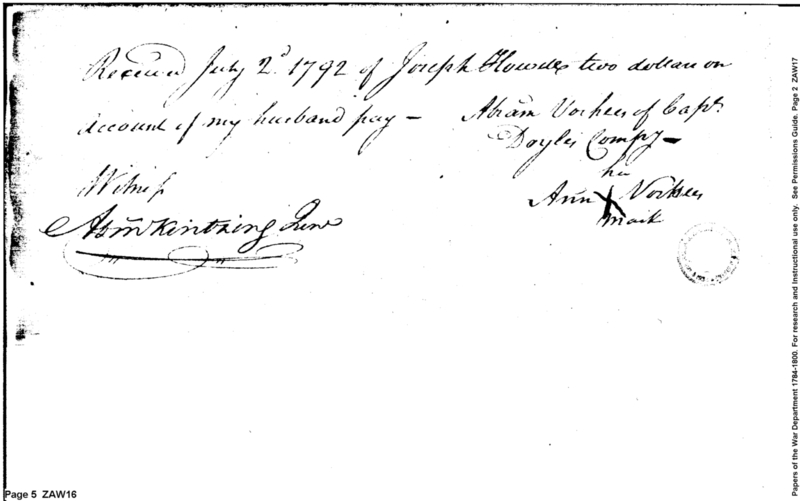 Received July 2d. 1792 of Joseph Howell two dollars on
account of my husband pay – Abram Vorhees of Capt.
Doyles Compy –
her
Ann X Vorhees
mark
Witness
Abm Kintzing Junr
Page 5 ZAW16
Papers of the War Department 1784-1800. For research and Instructional use only. See Permissions Guide. Page 2 ZAW17